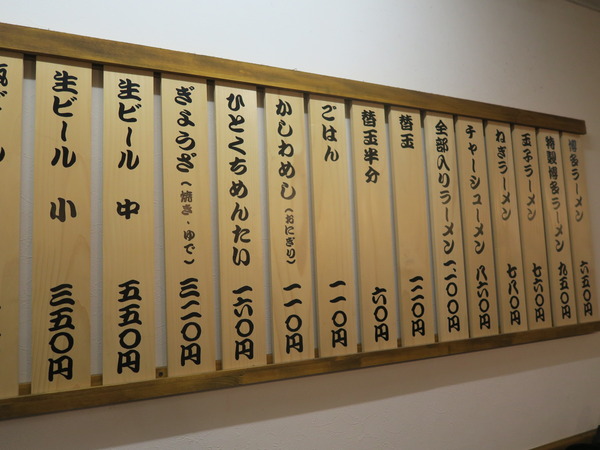 博多ラーメン 六五〇円
特製博多ラーメン 九五〇円
玉子ラーメン 七六〇円
ねぎラーメン 七八〇円
チャーシューメン 八六〇円
全部入りラーメン 一、〇〇〇円
替玉 一二〇円
替玉半分 六〇円
ごはん 一一〇円
かしわめし（おにぎり） 一一〇円
ひとくちめんたい 一六〇円
ぎょうざ（焼き・ゆで） 三二〇円
生ビール 中 五五〇円
生ビール 小 三五〇円